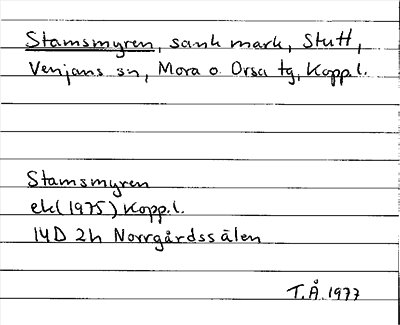 Stamsmyren, sank mark, Stutt,
Venjans sn, Mora o. Orsa tg, Kopp.l.
Stamsmyren
ek (1975) Kopp.l.
14D 2h Norrgårdssälen
T.Å. 1977